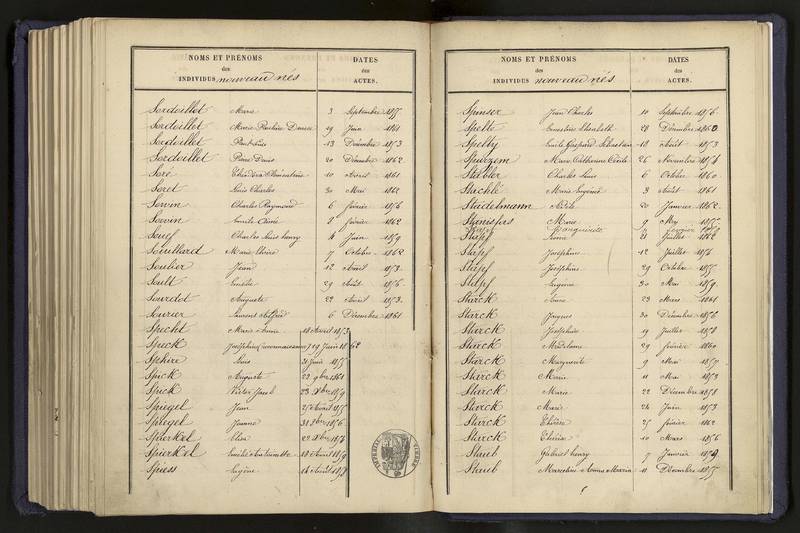 NOMS ET PRÉNOMS
des
INDIVIDUS nouveau nés
DATES
des
ACTES.
Sordoillet Marie 3 Septembre 1855
Sordoillet 29 Juin 1861
Sordoillet 13 Décembre 1853
Sordoillet Pierre Denis 20 Décembre 1862
Soré 10 Avril 1861
Soret Louis Charles 30 Mai 1862
Sorvin Charles Raymond 6 février 1856
Sorvin 8 février 1862
Souef Charles Louis henry 4 Juin 1859
Souilhard Marie 7 Octobre 1862
Soulier Jean 12 Avril 1853
Soult Emilie 29 Août 1856
Sourdot Auguste 22 Avril 1853
Sourier Laurent Alfred 6 Décembre 1861
Specht Marie Anne 18 Avril 1853
Speck Joséphine (reconnaissance) 19 Juin 1862
Sphire 21 Juin 1855
Spick Auguste 23 9bre 1861
Spick Victor Jacob 23 Xbre 1859
Spiegel Jean 25 Avril 1855
Spiegel Jeanne 31 1856
Spierkel Elisa 22 Xbre 1856
Spierkel Emilie Antoinette 18 Avril 1859
Spiess Eugène 14 Avril 1858
NOMS ET PRÉNOMS
des
INDIVIDUS nouveau nés.
DATES
des
ACTES.
Spinser Jean Charles 10 Septembre 1856
Spelte Ernestine Elisabeth 28 Décembre 1860
Spelty Emile Gaspard Sébastien 18 Août 1853
Spurzem Marie Catherine Cécile 26 Novembre 1856
Stabler Charles Louis 6 Octobre 1860
Stachlé Marie Eugénie 3 Août 1861
Stadelmann Adèle 20 Janvier 1862
Stanisfers Marie 9 Mai 1855
Marguerite février
Stapf 21 Juillet 1862
Stapf Joséphine 12 Juillet 1856
Stapf Joséphine 29 Octobre 1855
Stapf Eugène 30 Mai 1859
Starck 23 Mars 1861
Starck Jacques 30 Décembre 1856
Starck Joséphine 19 Juillet 1858
Starck Madeleine 29 février 1860
Starck Marguerite 9 Mai 1857
Starck Marie 11 Mai 1853
Starck Marie 22 Décembre 1858
Starck Marie 24 Juin 1853
Starck Thérèse 25 février 1862
Starck Thérèse 10 Mars 1856
Staub Gabriel henry 7 Janvier 1859
Staub Marcelin Anna Maria 11 Décembre 1855